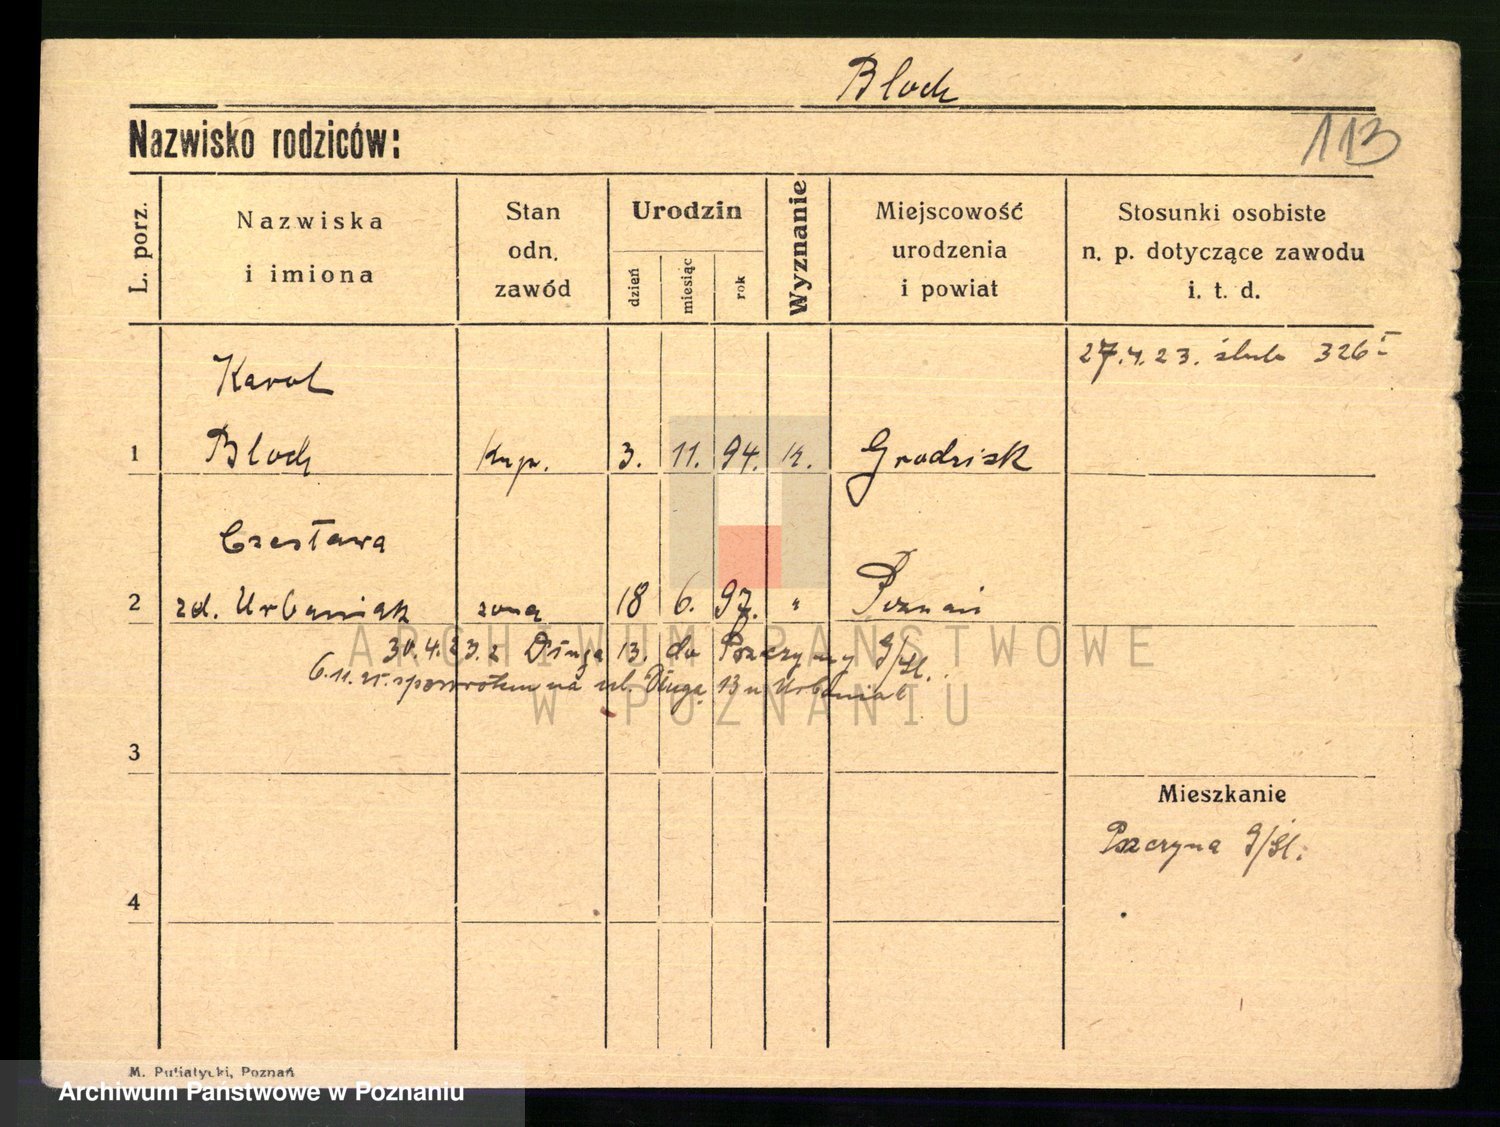 Bloch
Nazwisko rodziców:
113
L. porz.
Nazwiska
i imiona
Stan
odn.
zawód
Urodzin
dzień
miesiąc
rok
Wyznanie
Miejscowość
urodzenia
i powiat
Stosunki osobiste
n. p. dotyczące zawodu
i. t. d.
27.4.23. 326
Karol
1 Bloch kup. 3. 11. 94. k. Grodzisk
Czesława
2 zd. Urbaniak żona 18 6. 97. " Poznań
30.4.23 z Długa 13. do Pszczyny G/Śl.
6.11.25. spowrotem na ul. Długa 13 u Urbaniak
3
4
Mieszkanie
Pszczyna G/Śl.
M. Putiatycki, Poznań
ARCHIWUM PAŃSTWOWE
W POZNANIU
Archiwum Państwowe w Poznaniu